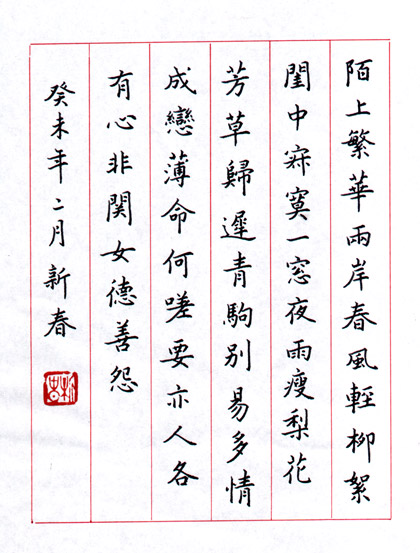 陌上繁華兩岸春風輕柳絮
閨中寂寞一窓夜雨瘦梨花
芳草歸遲青駒别易多情
成戀薄命何嗟要亦人各
有心非関女德善怨
癸未年二月新春